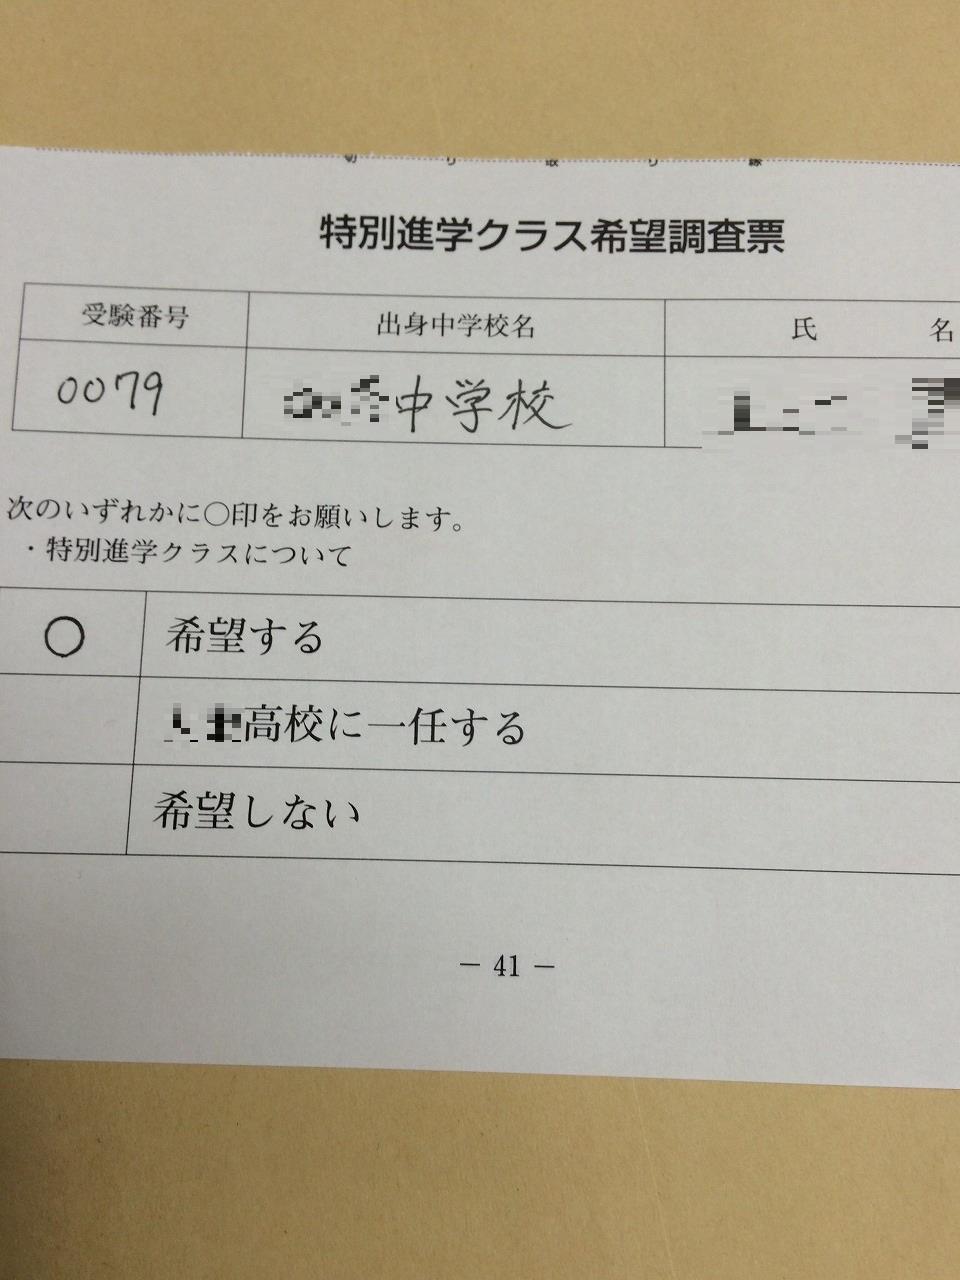 切り取り線
特別進学クラス希望調査票
受験番号 出身中学校名 氏 名
0079 中学校
次のいずれかに○印をお願いします。
・特別進学クラスについて
○ 希望する
高校に一任する
希望しない
− 41 −